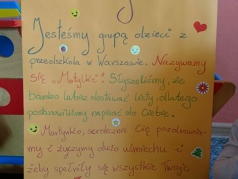 Jesteśmy grupą dzieci z
przedszkola w Warszawie. Nazywamy
się "Motylki". Słyszeliśmy, że
bardzo lubisz dostawać listy, dlatego
postanowiliśmy napisać do Ciebie.
serdecznie Cię pozdrawia-
my i życzymy dużo uśmiechu i
żeby spełniły się wszystkie Twoje